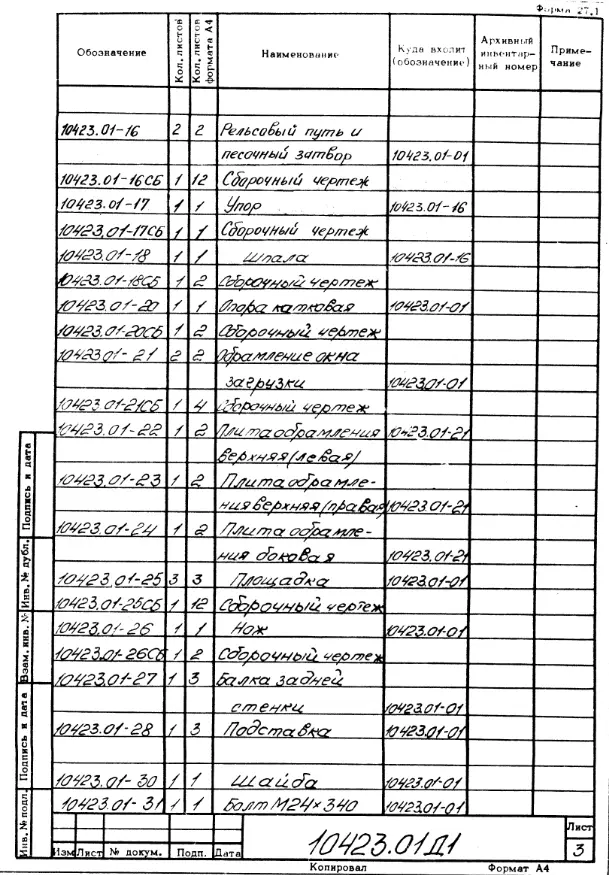 Форма 27.1
Обозначение Кол. листов Кол. листов формата А4 Наименование Куда входит (обозначение) Архивный инвентарный номер Примечание
10423.01-16 2 2 Рельсовый путь и
песочный затвор 10423.01-01
10423.01-16СБ 1 12 Сборочный чертеж
10423.01-17 1 1 Упор 10423.01-16
10423.01-17СБ 1 1 Сборочный чертеж
10423.01-18 1 1 Шпала 10423.01-16
10423.01-18СБ 1 2 Сборочный чертеж
10423.01-20 1 1 Опора катковая 10423.01-01
10423.01-20СБ 1 2 Сборочный чертеж
10423.01-21 2 2 Обрамление окна
загрузки 10423.01-01
10423.01-21СБ 1 4 Сборочный чертеж
10423.01-22 1 2 Плита обрамления 10423.01-21
верхняя (левая)
10423.01-23 1 2 Плита обрамле-
ния верхняя (правая) 10423.01-21
10423.01-24 1 2 Плита обрамле-
ния боковая 10423.01-21
10423.01-25 3 3 Площадка 10423.01-01
10423.01-25СБ 1 12 Сборочный чертеж
10423.01-26 1 1 Нож 10423.01-01
10423.01-26СБ 1 2 Сборочный чертеж
10423.01-27 1 3 Балка задней
стенки 10423.01-01
10423.01-28 1 3 Подставка 10423.01-01
10423.01-30 1 1 Шайба 10423.01-01
10423.01-31 1 1 Болт М24×340 10423.01-01
Инв. № подл. Подпись и дата Взам. инв. № Инв. № дубл. Подпись и дата
Изм Лист № докум. Подп. Дата
10423.01Д1
Лист
3
Копировал Формат А4